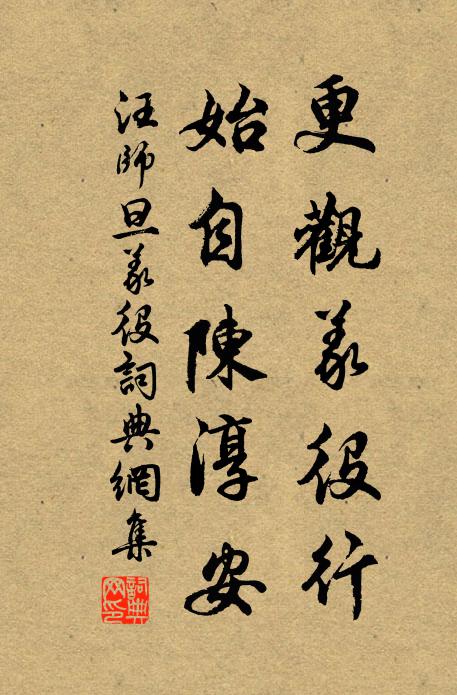 更觀義役行
始自陳淳安
汪師旦義役詞典網集
詞典网印